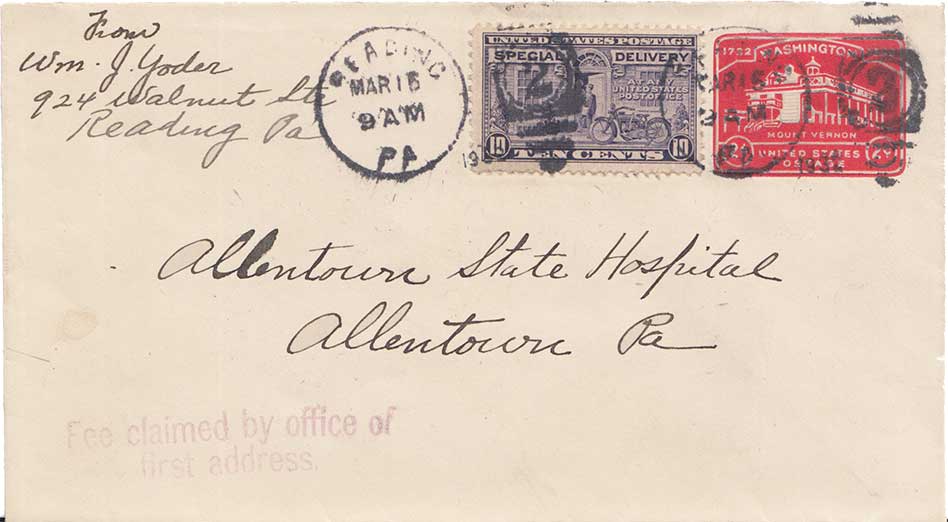 From
Wm. J. Yoder
924 Walnut St
Reading Pa
READING
MAR 15
9 AM
PA
UNITED STATES POSTAGE
SPECIAL DELIVERY
AT A
UNITED STATES
POST OFFICE
10 TEN CENTS 10
1732 WASHINGTON
MOUNT VERNON
UNITED STATES
POSTAGE
MAR 15
9 AM
1932
Allentown State Hospital
Allentown Pa
Fee claimed by office of
first address.